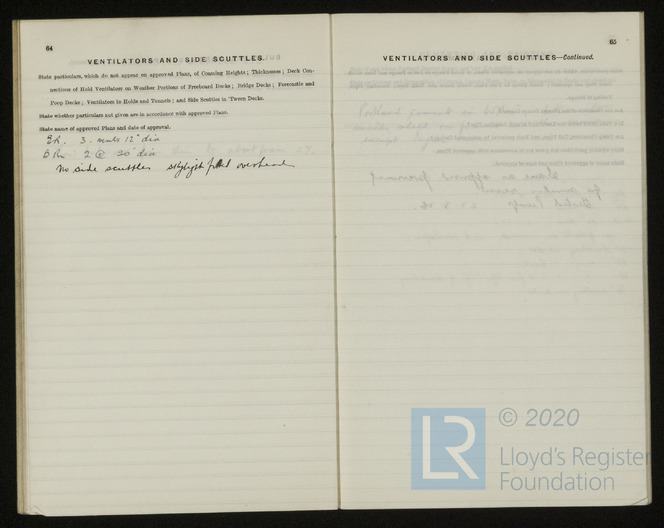 64
VENTILATORS AND SIDE SCUTTLES.
State particulars, which do not appear on approved Plans, of Coaming Heights; Thicknesses; Deck Con-
nections of Hold Ventilators on Weather Portions of Freeboard Decks; Bridge Decks; Forecastle and
Poop Decks; Ventilators to Holds and Tunnels; and Side Scuttles in 'Tween Decks.
State whether particulars not given are in accordance with approved Plans.
State name of approved Plans and date of approval.
E.R. 3 12" dia
B R 2 @ 30" dia
No side scuttles skylight fitted overhead
65
VENTILATORS AND SIDE SCUTTLES—Continued.
LR
© 2020
Lloyd's Register
Foundation